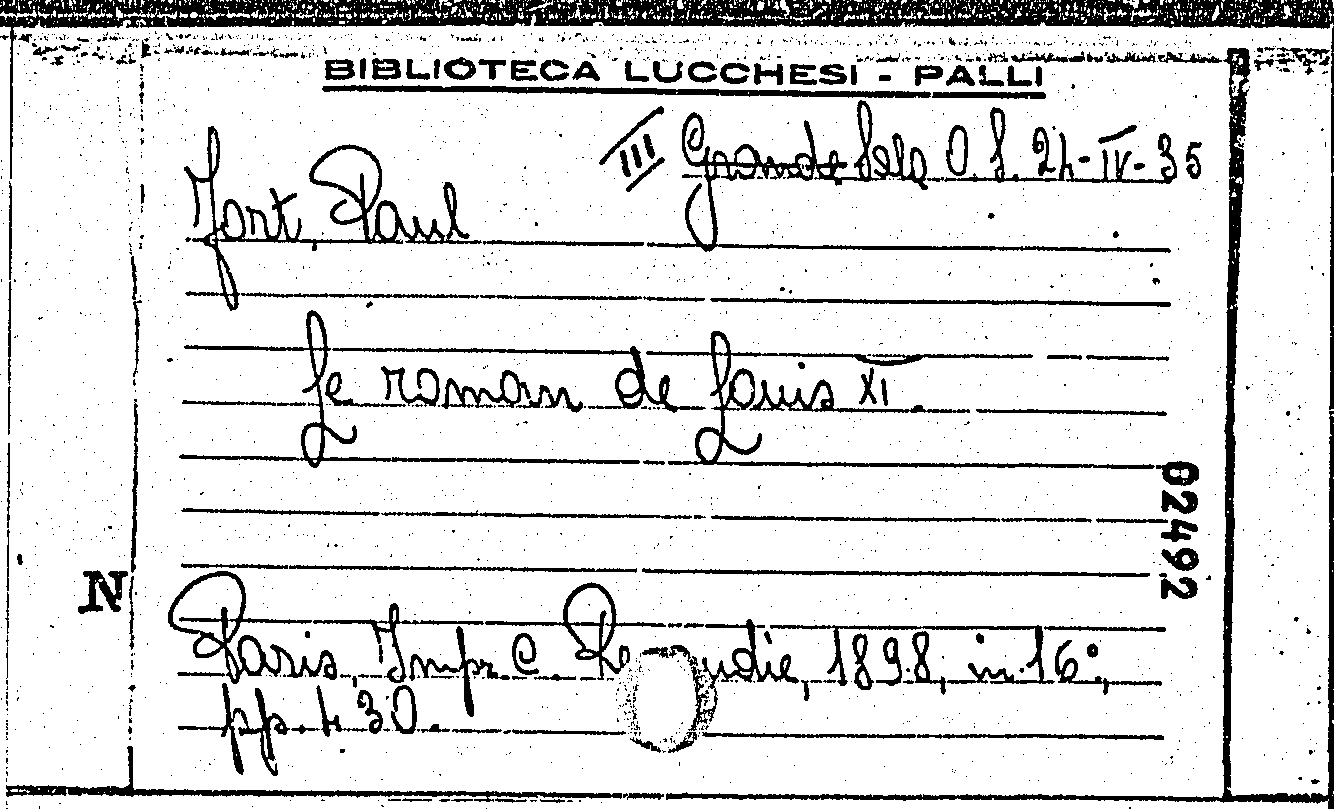 BIBLIOTECA LUCCHESI - PALLI
III Grande Sala O. S. 24-IV-35
Fort Paul
Le roman de Louis XI.
62492
N
Paris, Impr. C. udie, 1898, in 16°,
pp. 430.